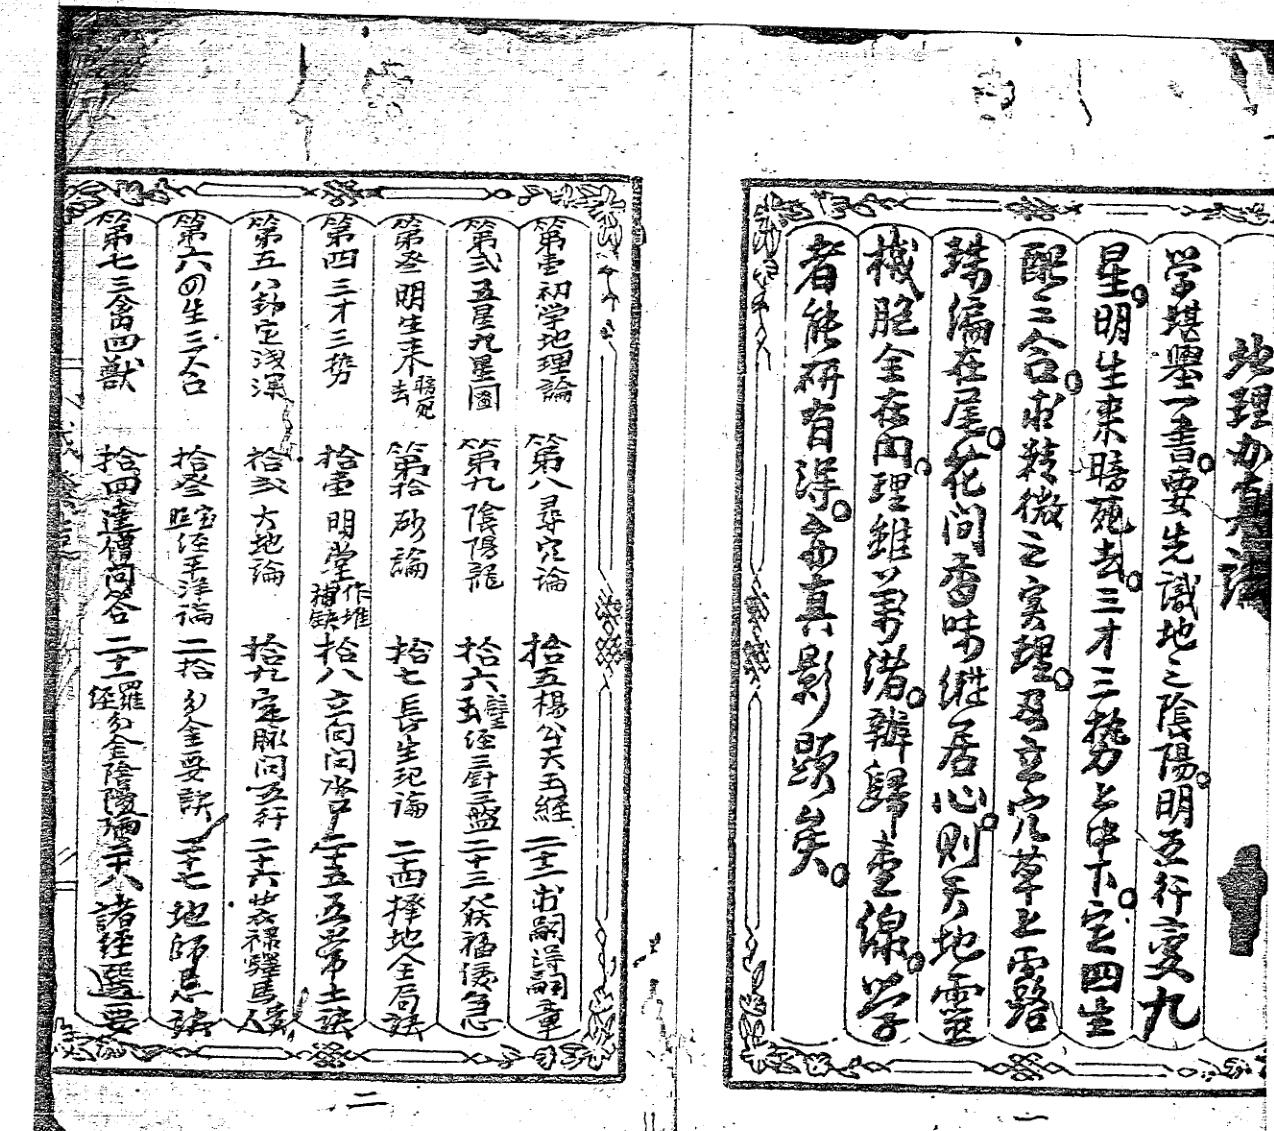 地理办真法
学堪墨一書要先識地之陰陽明五行变九
星明生来暗死去三才三势上中下定四生
配三合求精微之实理及立穴草上露
珠偏在尾花间香味縂居心则天地靈
機胞全在内理虽萬渚辨歸壹線学
者能研习得奇真影顕矣
一
第壹初学地理論 第八尋穴論 拾五楊公天玉經 二十二出嗣詩詞章
第弍五星九星圖 第九陰陽龍 拾六璧玉经三针三盤 二十三發福侵急
第叁明生来暗死去 第拾砂論 拾七長生死論 二十四擇地全局訣
第四三才三势 拾壹明堂作堆補缺 拾八立向问水口 二十五五常土訣
第五八卦定浅深 拾弍大地論 拾九定脉问五行 二十六禄驛馬人
第六四生三合 拾叁宝照经平洋論 二拾分金要訣 二十七地師忌訣
第七三禽四獸 拾四達僧问答 二十一羅经分金陰陽 二十八諸经選要
二